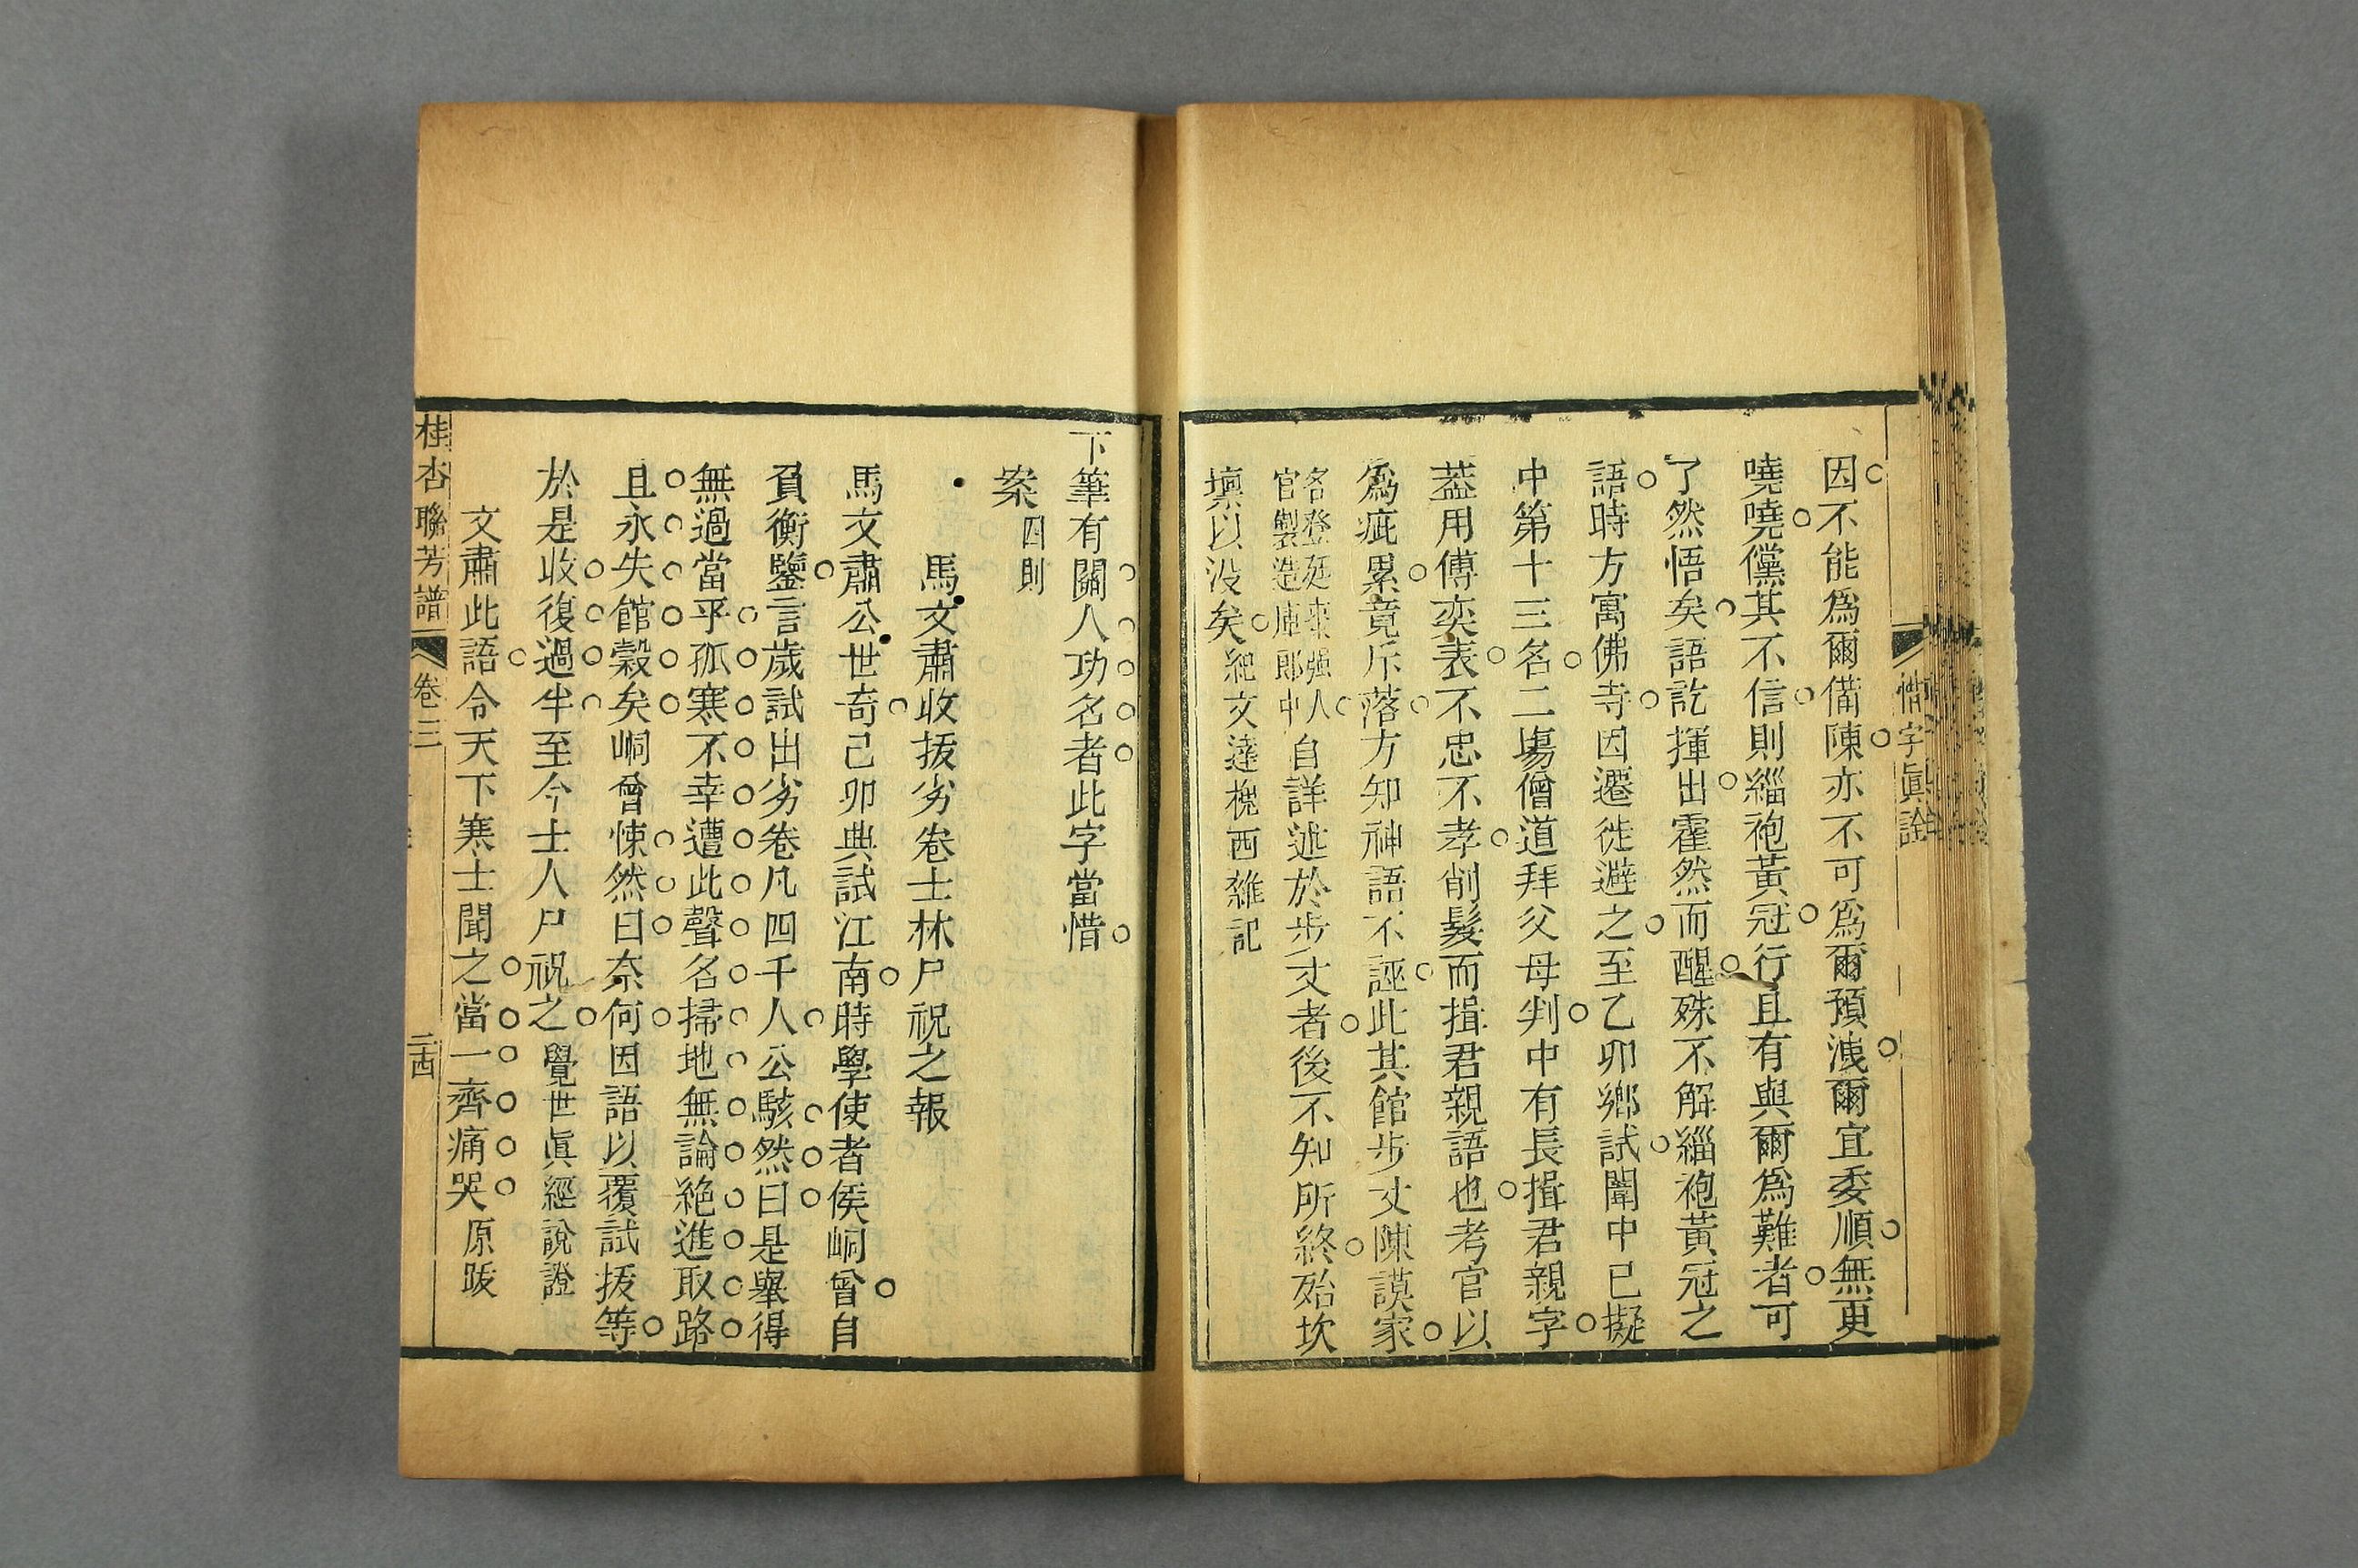 惜字眞詮
因不能爲爾備陳亦不可爲爾預洩爾宜委順無更
嘵嘵儻其不信則緇袍黃冠行且有與爾爲難者可
了然悟矣語訖揮出霍然而醒殊不解緇袍黃冠之
語時方寓佛寺因遷徙避之至乙卯鄉試闈中已擬
中第十三名二塲僧道拜父母判中有長揖君親字
葢用傅奕表不忠不孝削髮而揖君親語也考官以
爲疵累竟斥落方知神語不誣此其館步丈陳謨家
名登廷棗強人
官製造庫郎中
自詳述於步丈者後不知所終殆坎
壈以没矣紀文達槐西雜記
下筆有關人功名者此字當惜
案四則
馬文肅收拔劣卷士林尸祝之報
馬文肅公世奇己卯典試江南時學使者侯峒曾自
負衡鑒言歲試出劣卷凡四千人公駭然曰是舉得
無過當乎孤寒不幸遭此聲名掃地無論絶進取路
且永失館穀矣峒曾悚然曰奈何因語以覆試拔等
於是收復過半至今士人尸祝之覺世眞經說證
文肅此語令天下寒士聞之當一齊痛哭原跋
桂杏聯芳譜
卷三